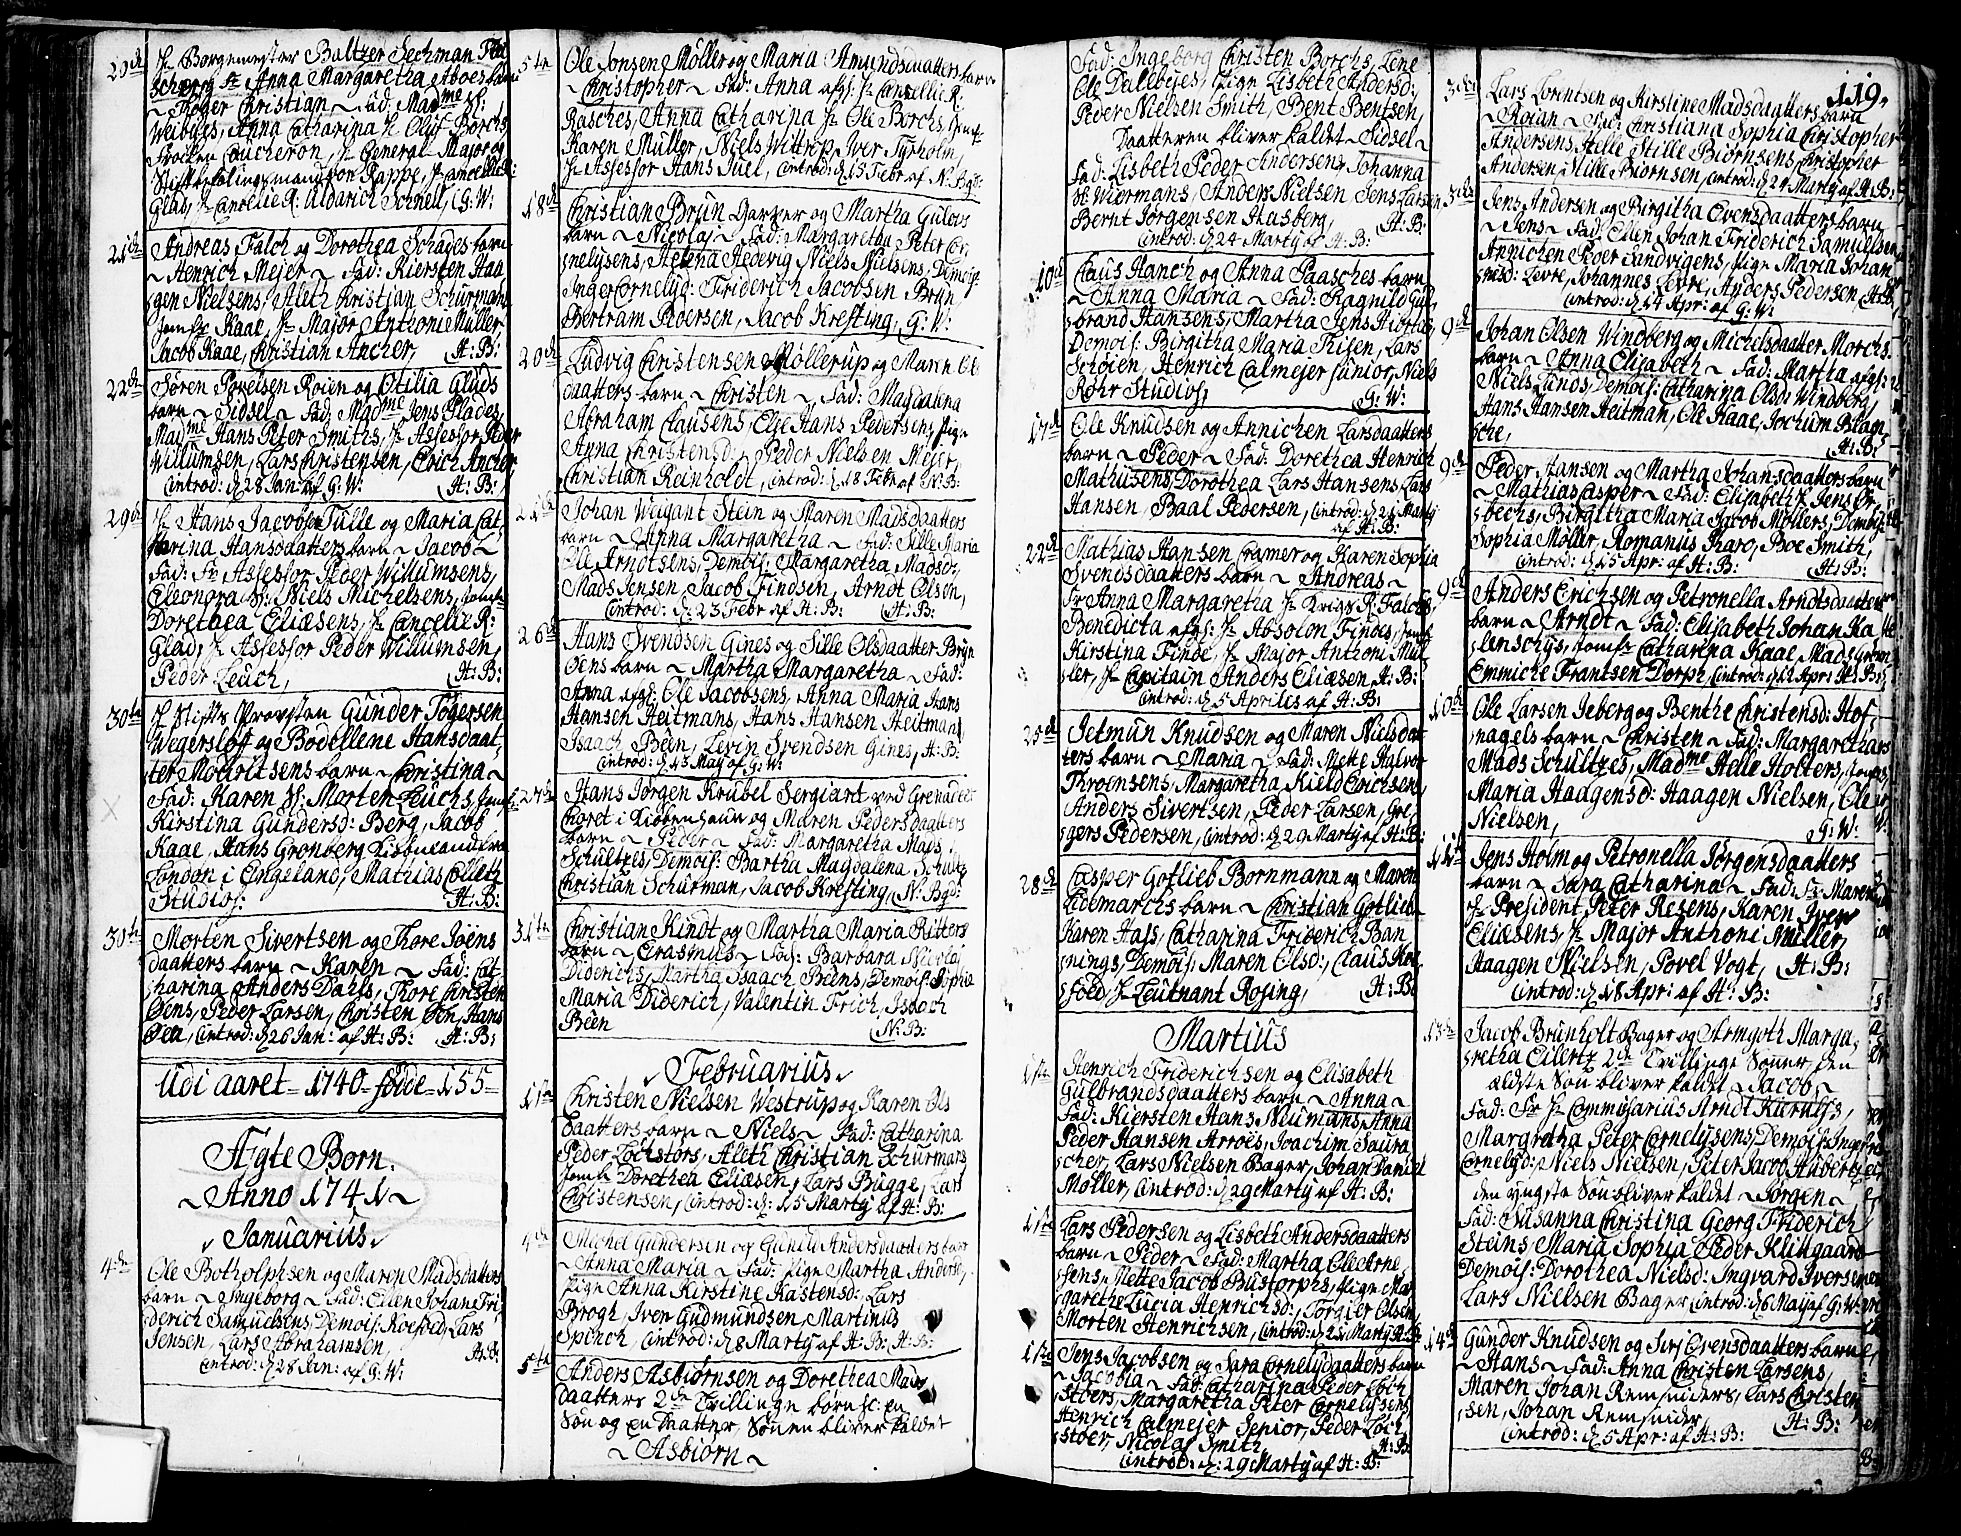 20de
Hr Borgemester Baltzer Sechman Flei
scherog Fr Anna Margaretha Aboes barn
~ Tøger Christian ~ Fad: Madme Sl:
Weibyes, Anna Catharina Hr Oluf Borchs
Frøiken Coucheron, Hr General Major og
Stiftsbefalingsmand von Rappe, Hr Cancellie R:
Glad, Hr Cancelie R: Uldarich Schnell, G: W:
21de
Andreas Falch og Dorothea Schades barn
~ Henrich Mejer ~ Fad: Kiersten Haa
gen Nielsens, Aleth Christian Schürmans
Jomfr Kaae, Hr Major Anthoni Müller
Jacob Kaae, Christian Ancher, H: B:
22de
Søren Povelsen Roien og Otilia Glads
barn ~ Sidsel ~ Fad: Madme Jens Plades,
Madme Hans Peter Smiths, Hr Assessor Peder
Willumsen, Lars Christensen, Erich Ancher
Introd: d 28 Jan af G: W: H: B:
29de
Hr Hans Jacobsen Tülle og Maria Cat,
harina Hansdaatters barn ~ Jacob ~
Fad: Fr Assessor Peder Willumsens,
Eleonora Sl: Niels Michelsens, Jomfr
Dorethea Eliæsens, Hr Cancelie R:
Glad, Hr Assessor Peder Willumsen,
Peder Leuch, H: B:
30te
Hr Stifts Provsten Gunder Tøgersen
Wegersløff og Bodellene Hansdaat,
ters Moevitsens barn ~ Christina ~
Fad: Karen Sl: Morten Leuchs, Jomfr
Kirstina Gundersd: Berg, Jacob
Kaae, Hans Grønberg Kiøbmand
London i Engeland, Mathias Colleth
Studios: H: B:
30te
Morten Sivertsen og Thore Jøens
daatters barn ~ Karen ~ Fad: Cat
harina Anders Dahls, Thore Christen
Øens, Peder Larsen, Christen Øen, Hans
Øen, Introd: d 26 Jan: af H: B: H: B:
Udi aaret = 1740 = fødde = 155 =
Ægte Børn.
~ Anno 1741 ~
Januarius
4de
Ole Botholphsen og Maren Madsdatters
barn ~ Ingeborg ~ Fad: Ellen Johan Fri,
derich Samuelsens, Demois: Roefoed, Lars
Jensen, Lars Abrahamsen, H: B:
Introd: d 28 Jan: af G: W:
5te
Ole Jonsen Møller og Maria Amundsdaatters barn
~ Christopher ~ Fad: Anna afgl: Hr Cancellie R.
Rasches, Anna Catharina Hr Ole Borchs, Jomfr
Karen Müller, Niels Wittrop, Iver Tyrholm,
Hr Assessor Hans Juel, Introd: d 15 Febr af N. Bgd:
18de
Christian Brun Garver og Martha Gulovs
barn ~ Nicolaj ~ Fad: Margaretha Peter Cor,
nelysens, Helena Hedevig Niels Nielsens, Demois:
Inger Cornelyd: Friderich Jacobsen Brun
Bertram Pedersen, Jacob Kresting, G: W:
20de
Ludvig Christensen Møllerup og Maren Ols
daatters barn ~ Christen ~ Fad: Magdalena
Abraham Clausens, Else Hans Pedersens, Pige
Anna Christensd:, Peder Nielsen Mejer,
Christian Reinholdt, Introd: d 18 Febr af N: B:
21de
Johan Weigant Stein og Maren Madsdaatters
barn ~ Anna Margaretha ~ Fad: Sille Maria
Ole Arndtsens, Demois: Margaretha Madsd:,
Mads Jensen Jacob Findsen, Arndt Olsen,
Introd: d 23 Febr af H: B: H: B:
26de
Hans Svendsen Gines og Sille Olsdaatter Bryn
dens barn ~ Martha Margaretha ~ Fad:
Anna afgl: Ole Jacobsens, Anna Maria Hans
Hansen Heitmans, Hans Hansen Heitman,
Isaach Been, Levin Svendsen Gines, H: B:
Introd: d 13 May af G: W:
27de
Hans Jørgen Krubel Sergiant ved Grenadeer
Choret i Kiøbenhaun og Maren Pedersdaatters
barn ~ Peder ~ Fad: Margaretha Mads
Schultzes, Demois: Bartha Magdalena Schultz
Christian Schürman, Jacob Kresting, N: Bgd:
31te
Christian Kindt og Martha Maria Ritters
barn ~ Erasmus ~ Fad: Barbara Nicolaj
Diderichs, Martha Isaach Beens, Demois: Sophia
Maria Diderich, Valentin Frich, Isaach
Been N: B:
Februarius
1te
Christen Nielsen Westrup og Karen Ols
daatters barn ~ Niels ~ Fad: Catharina
Peder Lochstørs, Aleth Christian Schürmars
Jomfr Dorethea Eliæsen, Lars Brügge, Lars
Christensen, Introd: d: 15 Martij af H: B:
4de
Michel Gundersen og Gunild Andersdaatters barn
~ Anna Maria ~ Fad: Pige Martha Andersd,
Pige Anna Kirstine Kastensd: Lars
Brogh, Iver Gudmundsen, Martinus
Spinch, Introd: d 8 Martij af H: B: H: B:
5te
Anders Asbiørnsen og Dorethea Mads
daatters 2de Tvillinge børn sc: en
Søn og en Daatter, Sønen bliver kaldet
~ Asbiørn ~
Fad: Ingeborg Christen Borchs, Lene
Ole Dallebyes, Pige Lisbeth Andersd:,
Peder Nielsen Smith, Bent Bentsen,
Daatteren bliver kaldet ~ Sidsel ~
Fad: Lisbeth Peder Andersens Johanna
Sl: Wiermans, Anders Nielsen Jens Larsen
Bernt Jørgensen Aasberg, H: B:
Introd: d 24 Martij af H: B:
10de
Claus Hanch og Anna Paasches barn
~ Anna Maria ~ Fad: Ragnild Gul,
brand Hansens, Martha Jens Hiortes,
Demois: Birgitha Maria Friisen, Lars
Schoien, Henrich Calmejer Junior, Niels
Rohr Studios, G: W:
17de
Ole Knudsen og Annichen Larsdaatters
barn ~ Peder ~ Fad: Dorethea Henrich
Mathiesens, Dorothea Lars Hansens, Lars
Hansen, Baal Pedersen, Introd: d 21 Martij
af H: B:
22de
Mathias Hansen Cramer og Karen Sophia
Svendsdaatters barn ~ Andreas ~
Fr Anna Margaretha Hr Krigs R. Falchs,
Benedicta afgl: Hr Absolon Findes, Jomfr
Kirstina Finde, Hr Major Anthoni Mül
ler, Hr Capitain Anders Eliæsen, H: B:
Introd: d 5 Aprilis af H: B:
25de
Jetmun Knudsen og Maren Nielsdaat
ters barn ~ Maria ~ Fad: Mette Halvor
Throensens, Margaretha Kield Erichsens,
Anders Sivertsen, Peder Larsen, Gre,
gers Pedersen, Introd: d 29 Martij af H: B:
28de
Casper Gotlieb Bornmann og Maren
Lidemarchs barn ~ Christian Gotlieb ~
Karen Hass, Catharina Friderich Ban
nings, Demois: Maren Olsd:, Claus Roe
foed, Hr Leutnant Rosing, H: B:
Martius
1te
Henrich Friderichsen og Elisabeth
Gulbrandsdaatters barn ~ Anna ~
Fad: Kiersten Hans Neumans, Anna
Peder Hansen Arroes, Joachim Saura
scher, Lars Nielsen Bager, Johan Daniel
Møller, Introd: d 29 Martij af H: B:
1te
Lars Pedersen og Lisbeth Andersdaatters
barn ~ Peder ~ Fad: Martha Ole Arne,
sens, Mette Jacob Bustorphs, Pige Mar
garethe Lucia Henrichsd:, Torgier Olsen,
Morten Henrichsen, Introd: d 21 Martij H: B:
1te
Jens Jacobsen og Sara Cornelysdaatters barn
~ Jacobia ~ Fad: Catharina Peder Loch
støers, Margaretha Peter Cornelysens
Henrich Calmejer Senior, Peder Loch
støer, Nicolaj Smith, H: B:
Introd: d: 29 Martij af H: B:
119.
3die
Lars Lorentsen og Kirstine Madsdaatters barn
~ Roian ~ Fad: Christiana Sophia Christopher
Andersens Hille Stille Biørnsens, Christopher
Andersen, Stille Biørnsen, Introd: d 24 Martij af H: B:
3die
Jens Andersen og Birgitha Evensdaatters barn
~ Jens ~ Fad: Ellen Johan Friderich Samuelsens
Annichen Peder Sandvigens, Pige Maria Johan
nesd: Levre, Johannes Levre, Anders Pedersen, H: B:
Introd: d 14 Apr: af G: W:
9de
Johan Olsen Windberg og Michelsdaatter Morchs
barn ~ Anna Elisabeth ~ Fad: Martha afgl:
Niels Lunds, Demois: Catharina Olsd: Windberg,
Hans Hansen Heitman, Ole Kaae, Jochum Blan,
sche, H: B:
9de
Peder Hansen og Martha Johansdaatters barn
~ Mathias Casper ~ Fad: Elisabeth Hr Jens Ør
bechs, Birgitha Maria Jacob Møllers, Demois:
Sophia Møller, Romanus Karo, Boe Smith,
Introd: d 15 Apr: af H: B: H: B:
9de
Anders Erichsen og Petronella Arndtsdaatters
barn ~ Arndt ~ Fad: Elisabeth Johan Ka
lenschys, Jomfr Catharina Kaae, Mads Grøn
Emmiche Frantsen Dorph, Introd: d 12 Apr: H: B:
10de
Ole Larsen Jeberg og Benthe Christensd: Hof,
nagels barn ~ Christen ~ Fad: Margaretha
Mads Schultzes, Madme Helle Holters, Jomfr
Maria Haagensd: Haagen Nielsen, Ole
Nielsen, G: W:
11te
Jens Holm og Petronella Jørgensdaatters
barn ~ Sara Catharina ~ Fad: Fr Maren
Hr President Peter Resens, Karen Iver
Eliæsens, Hr Major Anthoni Müller,
Haagen Nielsen, Povel Vogt, H: B:
Introd: d 18 Apr: af H: B:
13de
Jacob Brünholt Bager og Armgoth Marga,
retha Eilertz 2de Tvillinge Sønner, Den
ældste Søn bliver kaldet ~ Jacob ~
Fad: Fr Hr Commisarius Arndt Kurulfs,
Margretha Peter Cornelysens, Demois: Inger
Cornelyd: Niels Nielsen, Peter Jacob Hubertz
den yngste Søn bliver kaldet ~ Jørgen ~
Fad: Susanna Christina Georg Friderich
Steins Maria Sophia Peder Klitgaard
Demois: Dorothea Nielsd: Ingvard Iversen
Lars Nielsen Bager Introd: d 6 Maij af G: W:
14de
Gunder Knudsen og Siri Evensdaatters barn
~ Hans ~ Fad: Anna Christen Larsens,
Maren Johan Remsniders, Lars Christen
sen, Johan Remsnider, H: B:
Introd: d 5 Apr: af H: B: